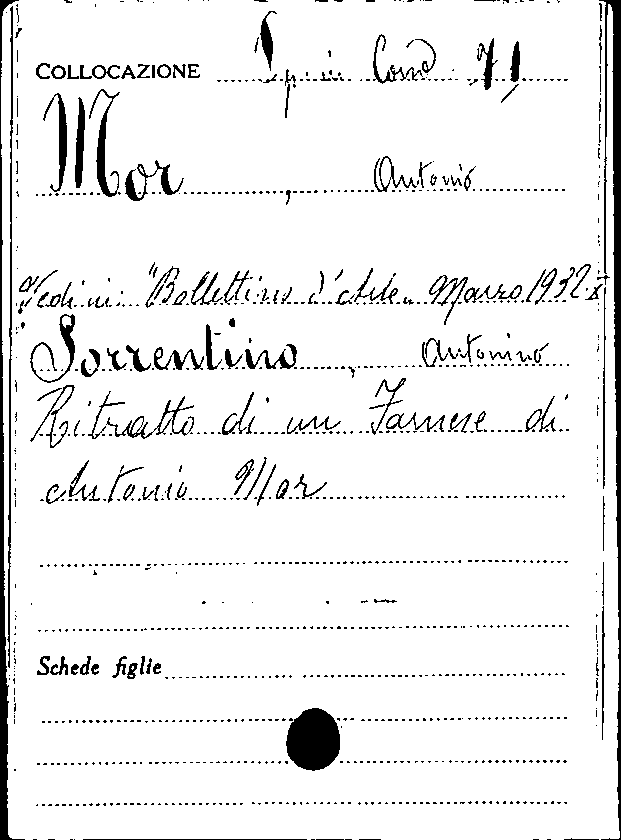 COLLOCAZIONE 71
Mor, Antonio
Vedi in: "Bollettino d'Arte" Marzo 1932 X
Sorrentino, Antonino
Ritratto di un Farnese di
Antonio Mor
Schede figlie